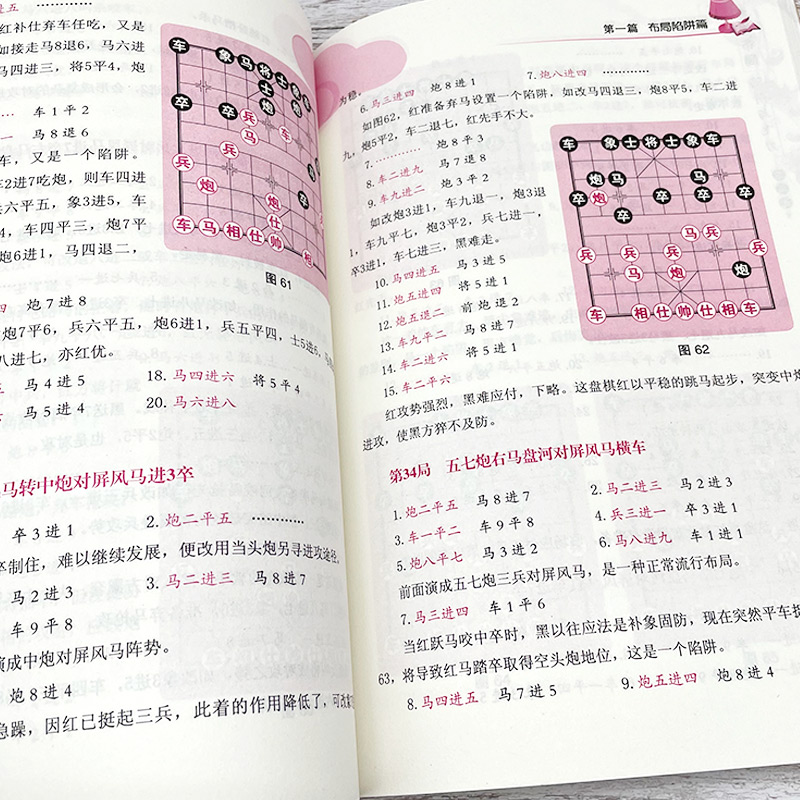 马五进
红补仕弃车任吃，又是
如接走马8退6，马六进
马四进三，将5平4，炮
车1平2
马8退6
车，又是一个陷阱。
车2进7吃炮，则车四进
兵六平五，象3进5，车
，车四平三，炮7平
6进1，马四退二，
图 61
炮7进8
炮7平6，兵六平五，炮6进1，兵五平四，士5进6，
八进七，亦红优。
马4进5
18.马四进六 将5平4
马5进4
20.马六进八
马转中炮对屏风马进3卒
卒3进1
2.炮二平五 …………
卒制住，难以继续发展，便改用当头炮另寻进攻途径。
马2进3
3.马二进三 马8进7
车9平8
演成中炮对屏风马阵势。
炮8进4
急躁，因红已挺起三兵，此着的作用降低了，可改
第一篇 布局陷阱篇
为稳。
6.马三进四 炮8进1
7.炮八进四 …………
如图62，红准备弃马设置一个陷阱，如改马四退三，炮8平5，车二进
九，炮5平2，车二退七，红先手不大。
7.………… 炮8平3
8.车二进九 马7退8
9.车九进二 炮3平2
如改炮3进1，车九退一，炮3退
1，车九平七，炮3平2，兵七进一，
卒3进1，车七进三，黑难走。
10.马四进五 马3进5
11.炮五进四 将5进1
12.炮五退二 前炮退2
13.车九平二 马8进7
14.车二进六 将5进1
15.车二平六
图 62
红攻势强烈，黑难应付，下略。这盘棋红以平稳的跳马起步，突变中炮
进攻，使黑方猝不及防。
第34局 五七炮右马盘河对屏风马横车
1.炮二平五 马8进7
2.马二进三 马2进3
3.车一平二 车9平8
4.兵三进一 卒3进1
5.炮八平七 马3进2
6.马八进九 车1进1
前面演成五七炮三兵对屏风马，是一种正常流行布局。
7.马三进四 车1平6
当红跃马咬中卒时，黑以往应法是补象固防，现在突然平车捉
63，将导致红马踏卒取得空头炮地位，这是一个陷阱。
8.马四进五 马7进5
9.炮五进四 炮8进4